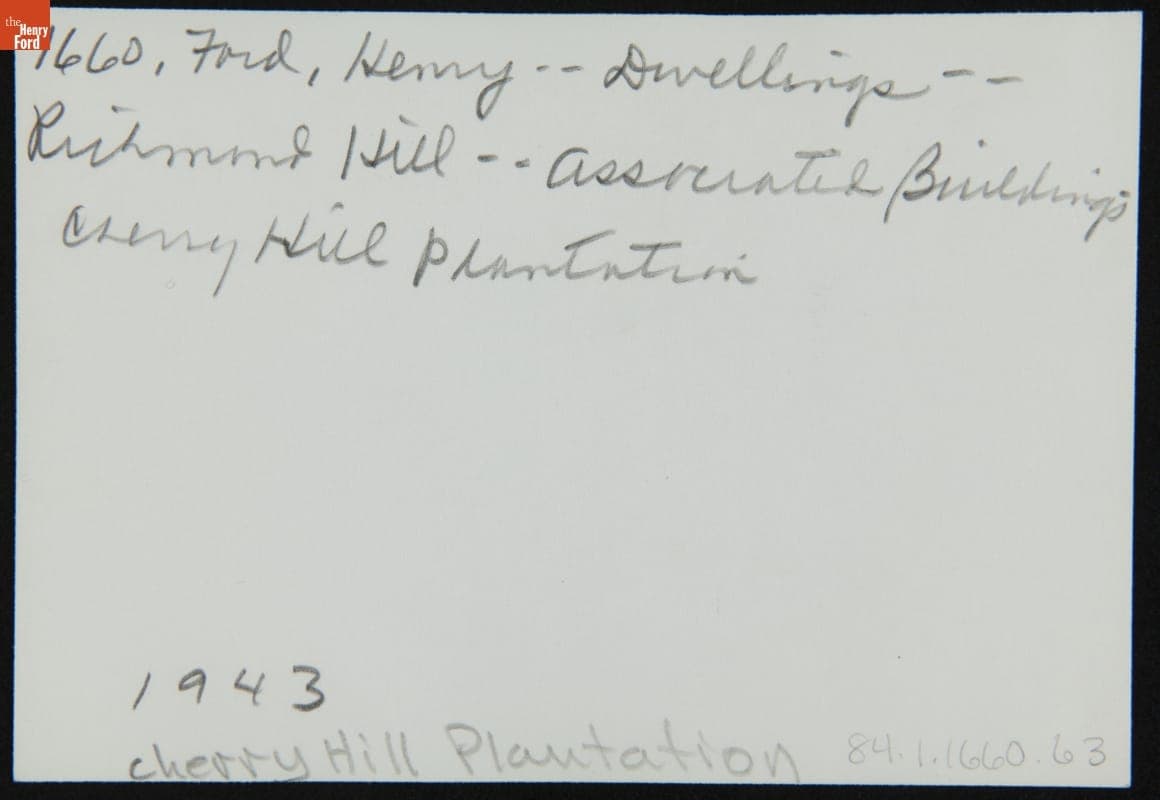 the Henry Ford
1660, Ford, Henry -- Dwellings --
Richmond Hill -- Associated Buildings
Cherry Hill Plantation
1943
cherry Hill Plantation
84.1.1660.63